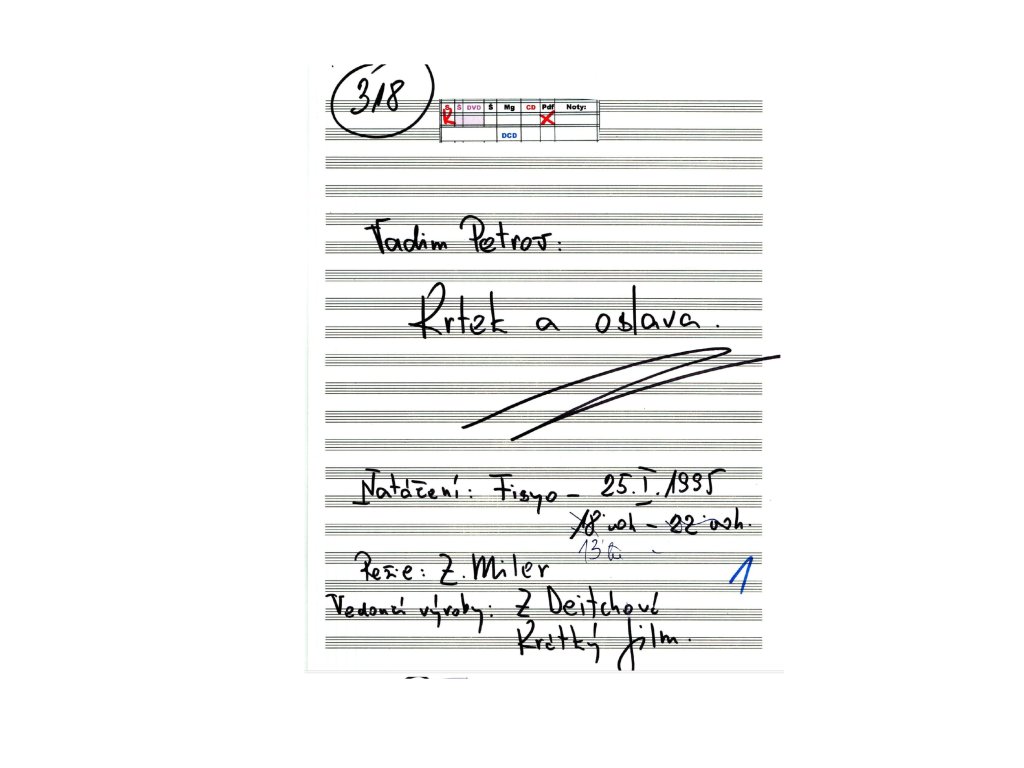 318
Š Š DVD Š Mg CD Pdf Noty:
R X
DCD
Vadim Petrov:
Krtek a oslava.
Natáčení: Fisyo - 25.I.1995
18 00h - 22 00h.
13
Režie: Z. Miler
1
Vedoucí výroby: Z Deitchová
Krátký film.